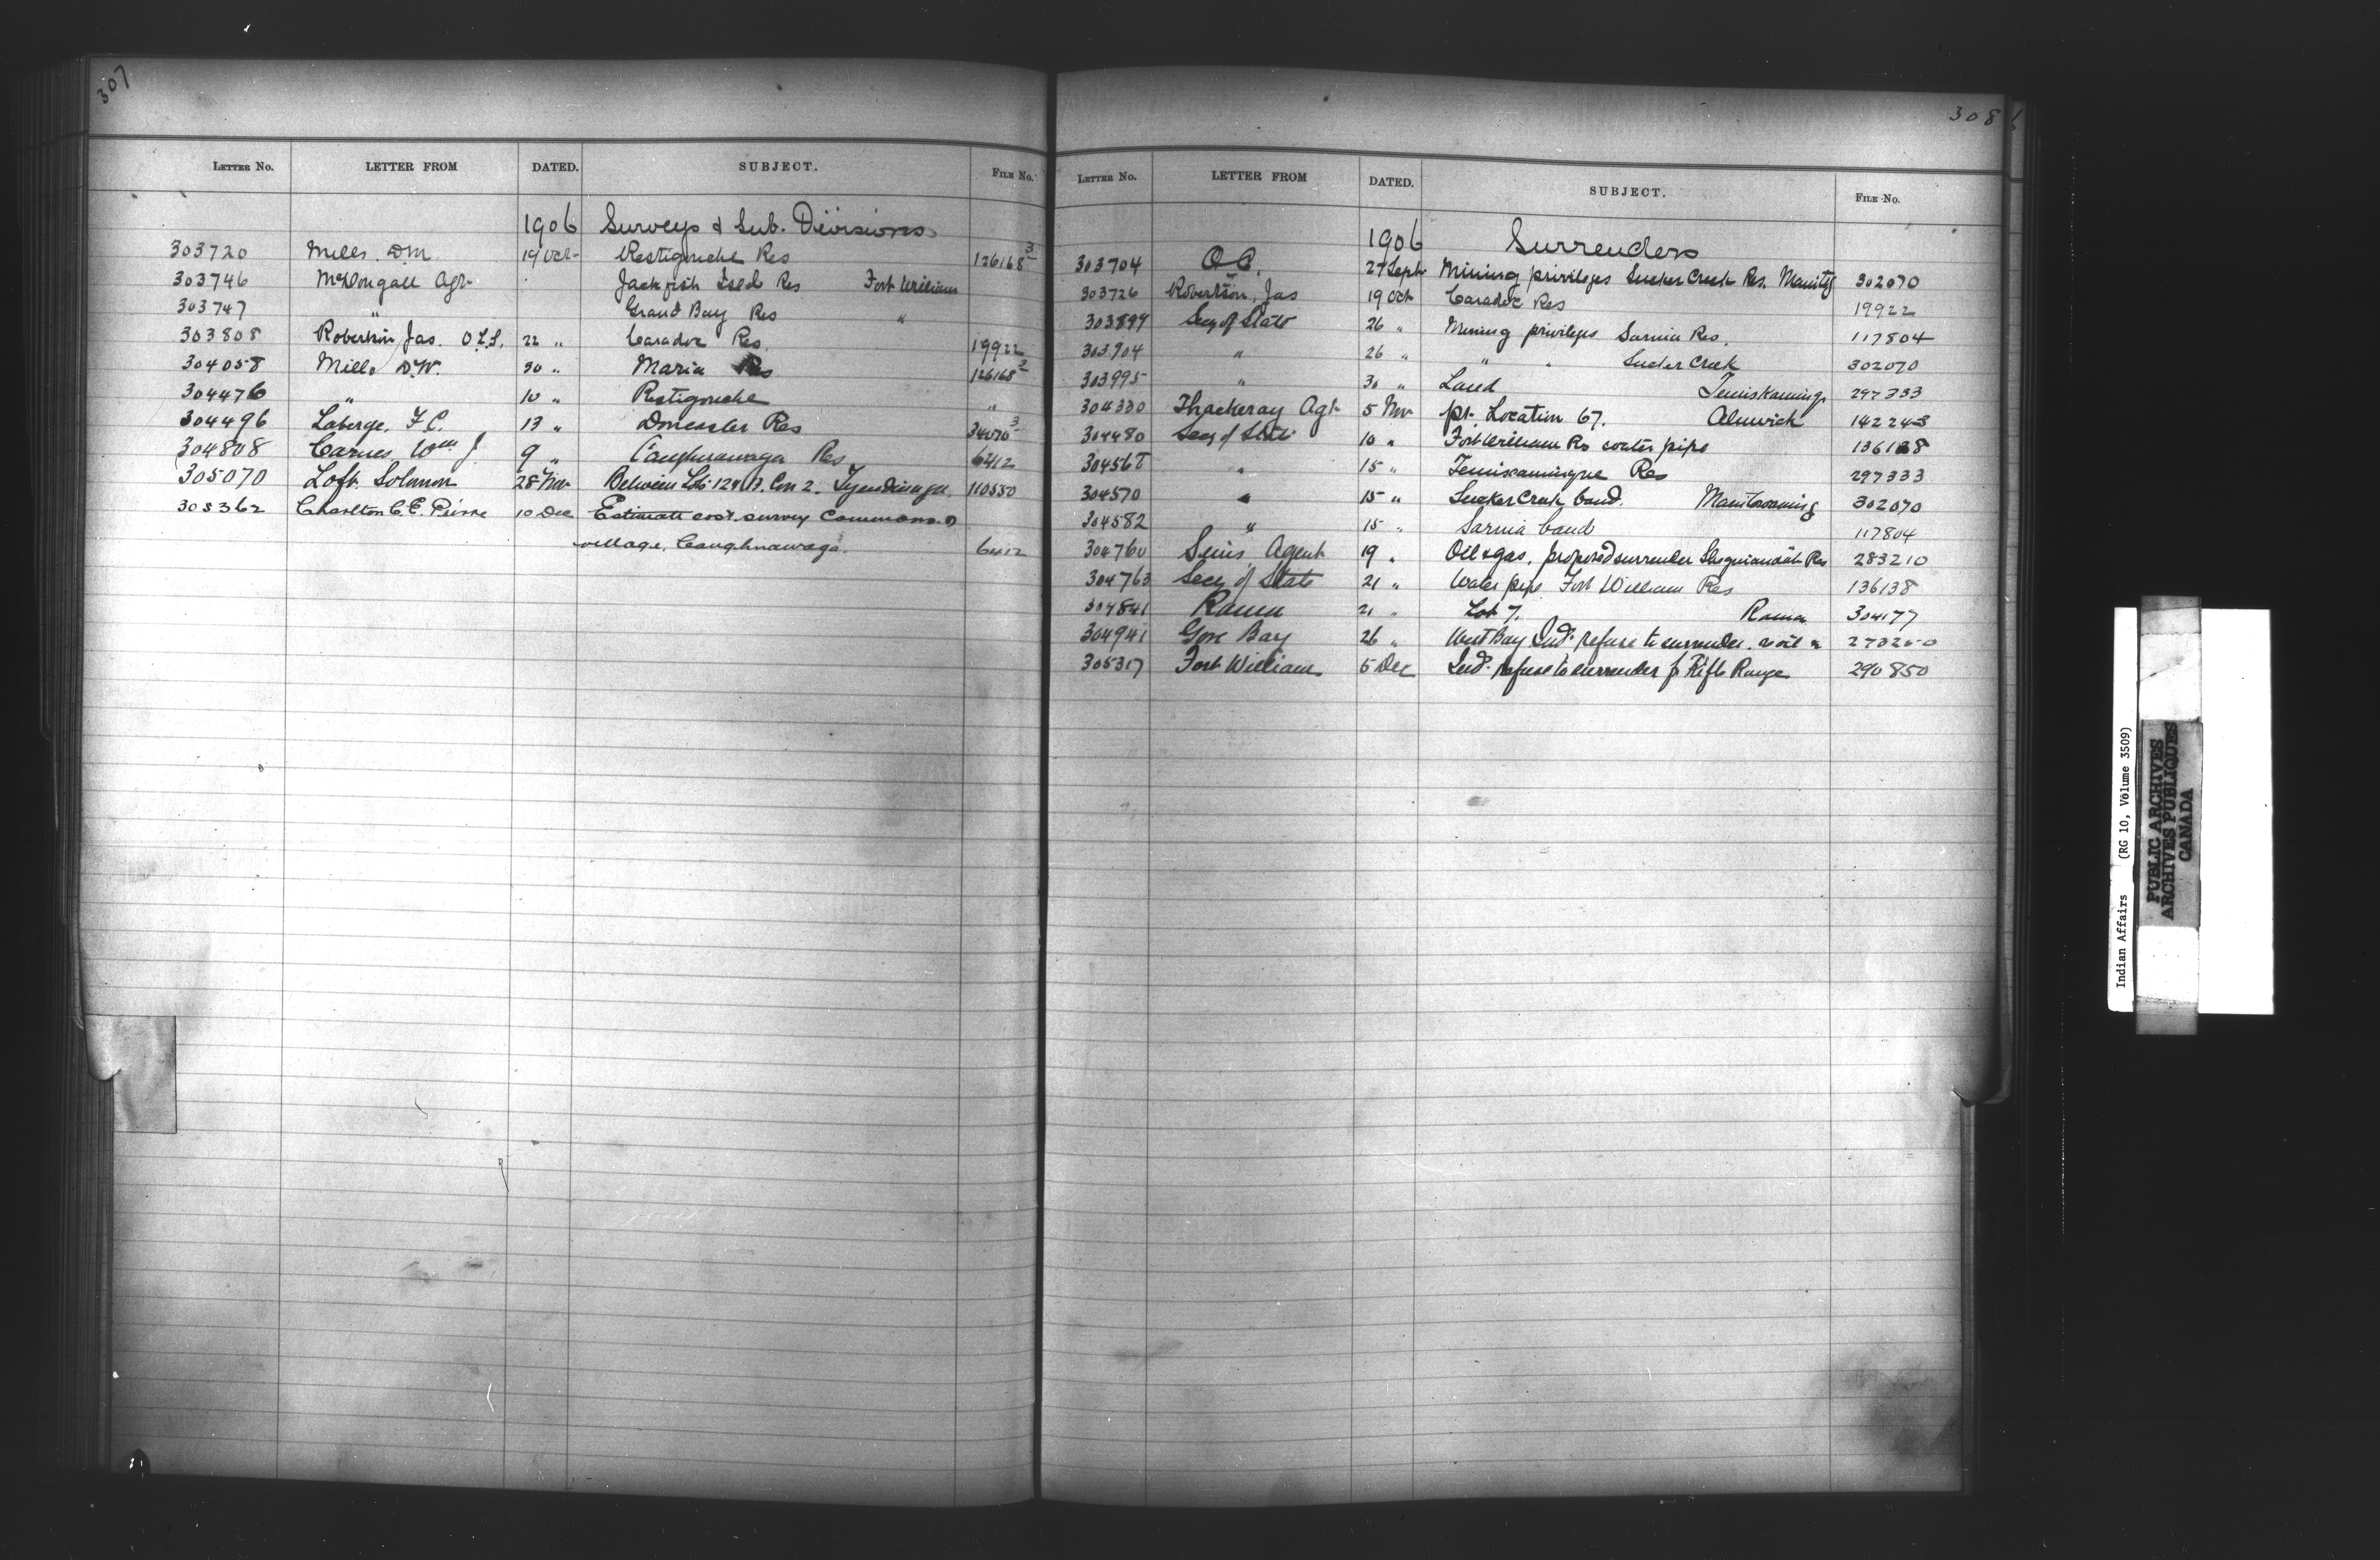 307
LETTER NO. LETTER FROM DATED. SUBJECT. FILE NO.
1906 Surveys & Sub. Divisions
303720 Mills D.M. 19 Oct Restigouche Res 126168-3
303746 McDougall Agt Jackfish Isld Res Fort William
303747 " Grand Bay Res "
303808 Robertson Jas. O.L.S. 22 " Caradoc Res. 19922
304058 Mills D.W. 30 " Maria Res 126168-3
304476 " 10 " Restigouche "
304496 Laberge, F.C. 13 " Doncaster Res 34070-3
304808 Carnes, Wm J 9 " Caughnawaga Res 6412
305070 Loft. Solomon 28 Nov Between Lots Con 2. Tyendinaga 110550
305362 Charlton C.E. Pierre 10 Dec Estimate cost survey Commons
village, Caughnawaga. 6412
308
LETTER NO. LETTER FROM DATED. SUBJECT. FILE NO.
1906 Surrenders
303704 O.C. 27 Sept Mining privileges Sucker Creek Res. 302070
303726 Robertson, Jas 19 Oct Caradoc Res 19922
303899 Secy of State 26 " Mining privileges Sarnia Res. 117804
303904 " 26 " " " Sucker Creek 302070
303995 " 30 " Land Temiskaming 297333
304330 Thackeray Agt 5 Nov pt. Location 67. Alnwick 142243
304480 Secy of State 10 " Fort William Res water pipe 136138
304568 " 15 " Temiscamingue Res 297333
304570 " 15 " Sucker Creek band. Manitowaning 302070
304582 " 15 " Sarnia band 117804
304760 Sims Agent 19 " Oil & gas, proposed surrender Sheguiandah Res 283210
304763 Secy of State 21 " Water pipe Fort William Res 136138
304841 Rama 21 " Lot 7. Rama 304177
304941 Gore Bay 26 " West Bay Inds. refuse to surrender 273250
305317 Fort William 5 Dec Inds. refuse to surrender for Rifle Range 290850
Indian Affairs (RG 10, Volume 3509)
PUBLIC ARCHIVES
ARCHIVES PUBLIQUES
CANADA